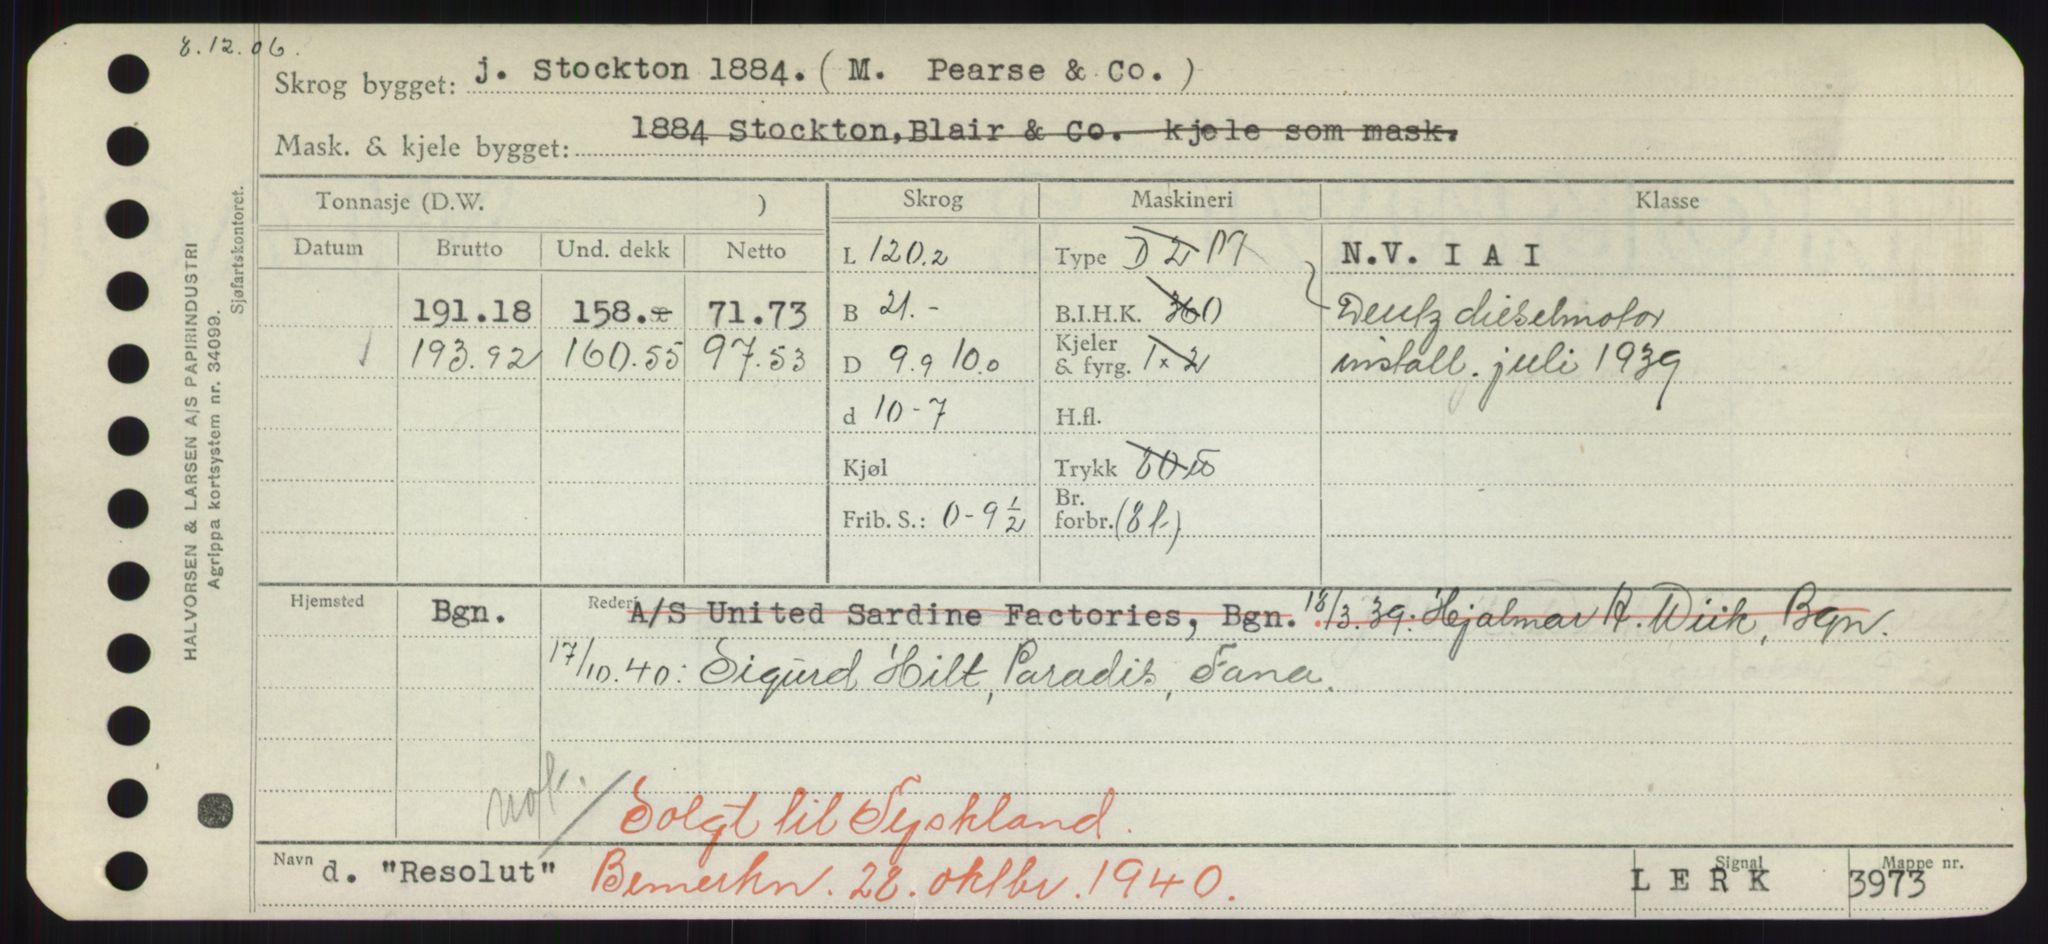 8.12.06.
Skrog bygget: j. Stockton 1884. ( M. Pearse & Co. )
Mask. & kjele bygget: 1884 Stockton, Blair & Co. kjele som mask.
Tonnasje (D.W. ) Skrog Maskineri Klasse
Datum Brutto Und. dekk Netto L 120.2 Type D 2 M N.V. I A I
191.18 158.- 71.73 B 21.- B.I.H.K. 360 Deutz dieselmotor
193.92 160.55 97.53 D 9.9 10.0 Kjeler & fyrg. 1 x 2 install. juli 1939
d 10-7 H.fl.
Kjøl Trykk 80
Frib. S.: 0-9 ½ Br. forbr. (8 t.)
Hjemsted Bgn. Rederi A/S United Sardine Factories, Bgn. 18/3.39: Hjalmar R. Wiik, Bgn.
17/10.40: Sigurd Hilt, Paradis, Fana.
Solgt til Tyskland.
Navn d. "Resolut" Bemerkn. 28. oktbr. 1940. Signal L E R K Mappe nr. 3973
HALVORSEN & LARSEN A/S PAPIRINDUSTRI
Agrippa kortsystem nr. 34099.
Sjøfartskontoret.